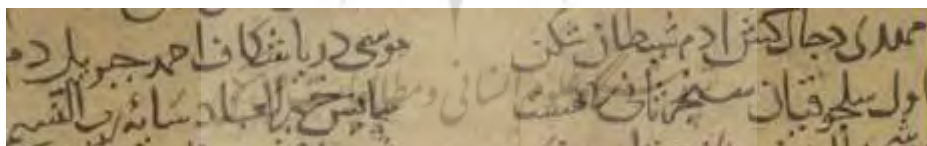 مهدی دجال کش ادم شیطان شکن موسی دریا شکاف احمد جبریل دم
اول سلجوقیان سنجر ثانی که هست خیر العباد سایه رب